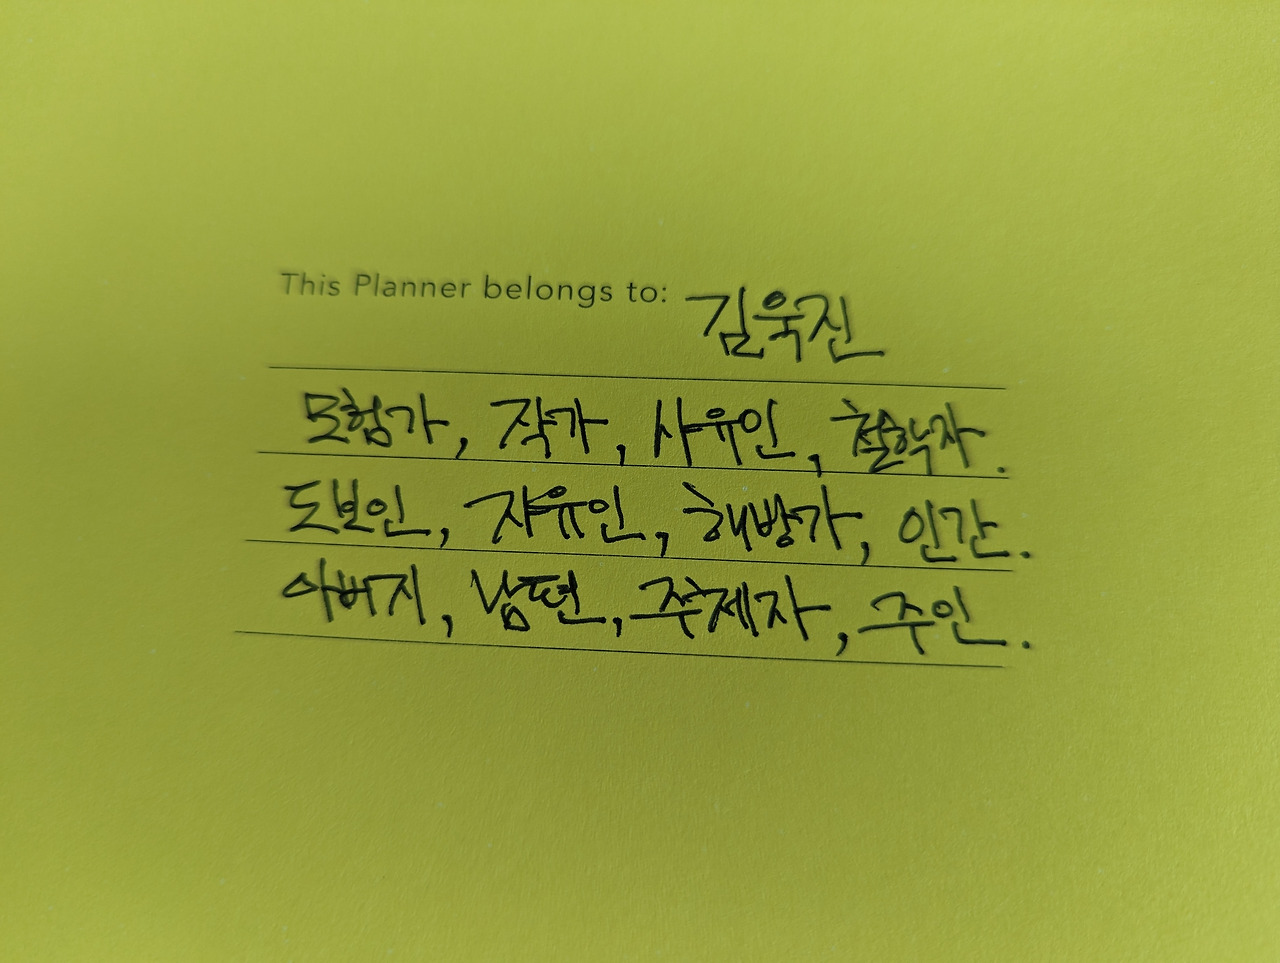 This Planner belongs to: 김욱진
모험가, 작가, 사유인, 철학자.
도보인, 자유인, 해방가, 인간.
아버지, 남편, 주체자, 주인.